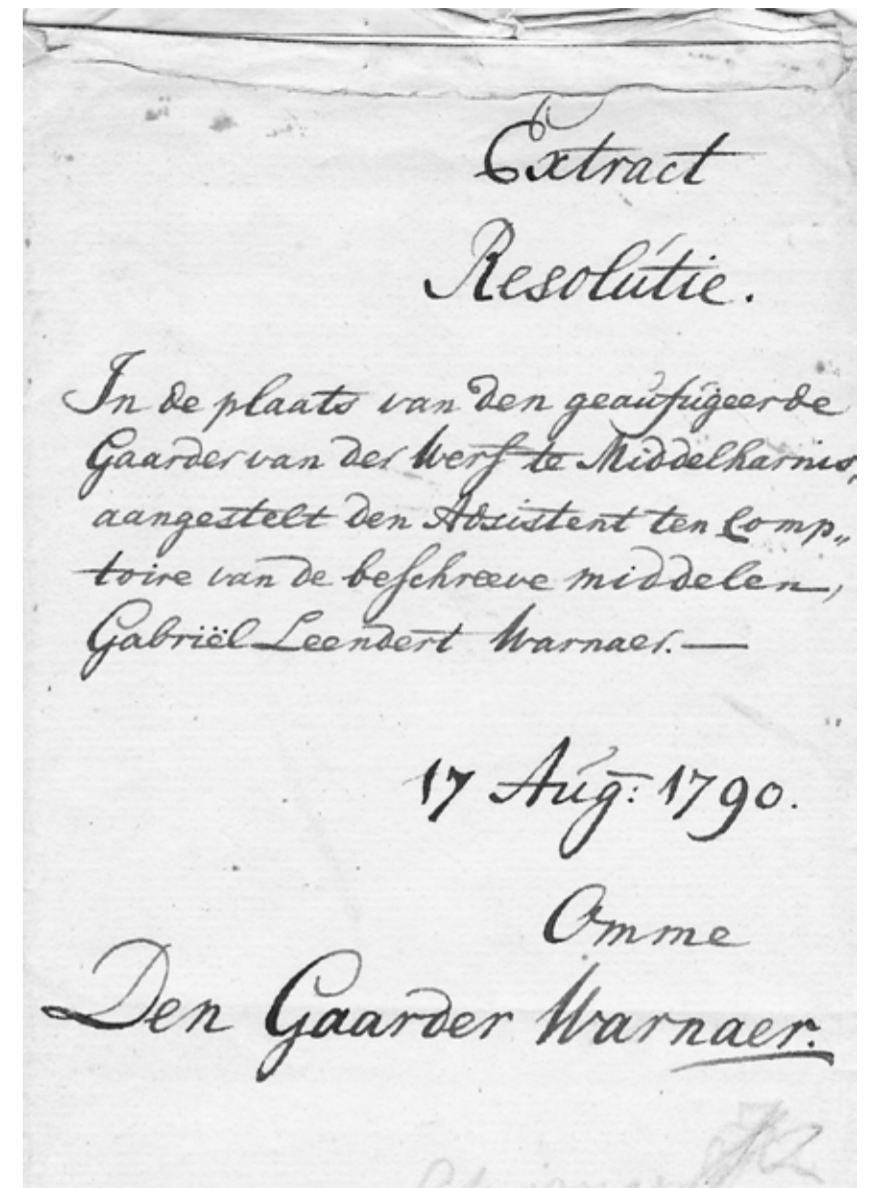 Extract
Resolútie.
In de plaats van den geaufúgeerde
Gaarder van der Werf te Middelharnis,
aangestelt den Adsistent ten Comp„
toire van de beschreeve middelen,
Gabriël Leendert Warnaer. —
17 Aúg: 1790.
Omme
Den Gaarder Warnaer.